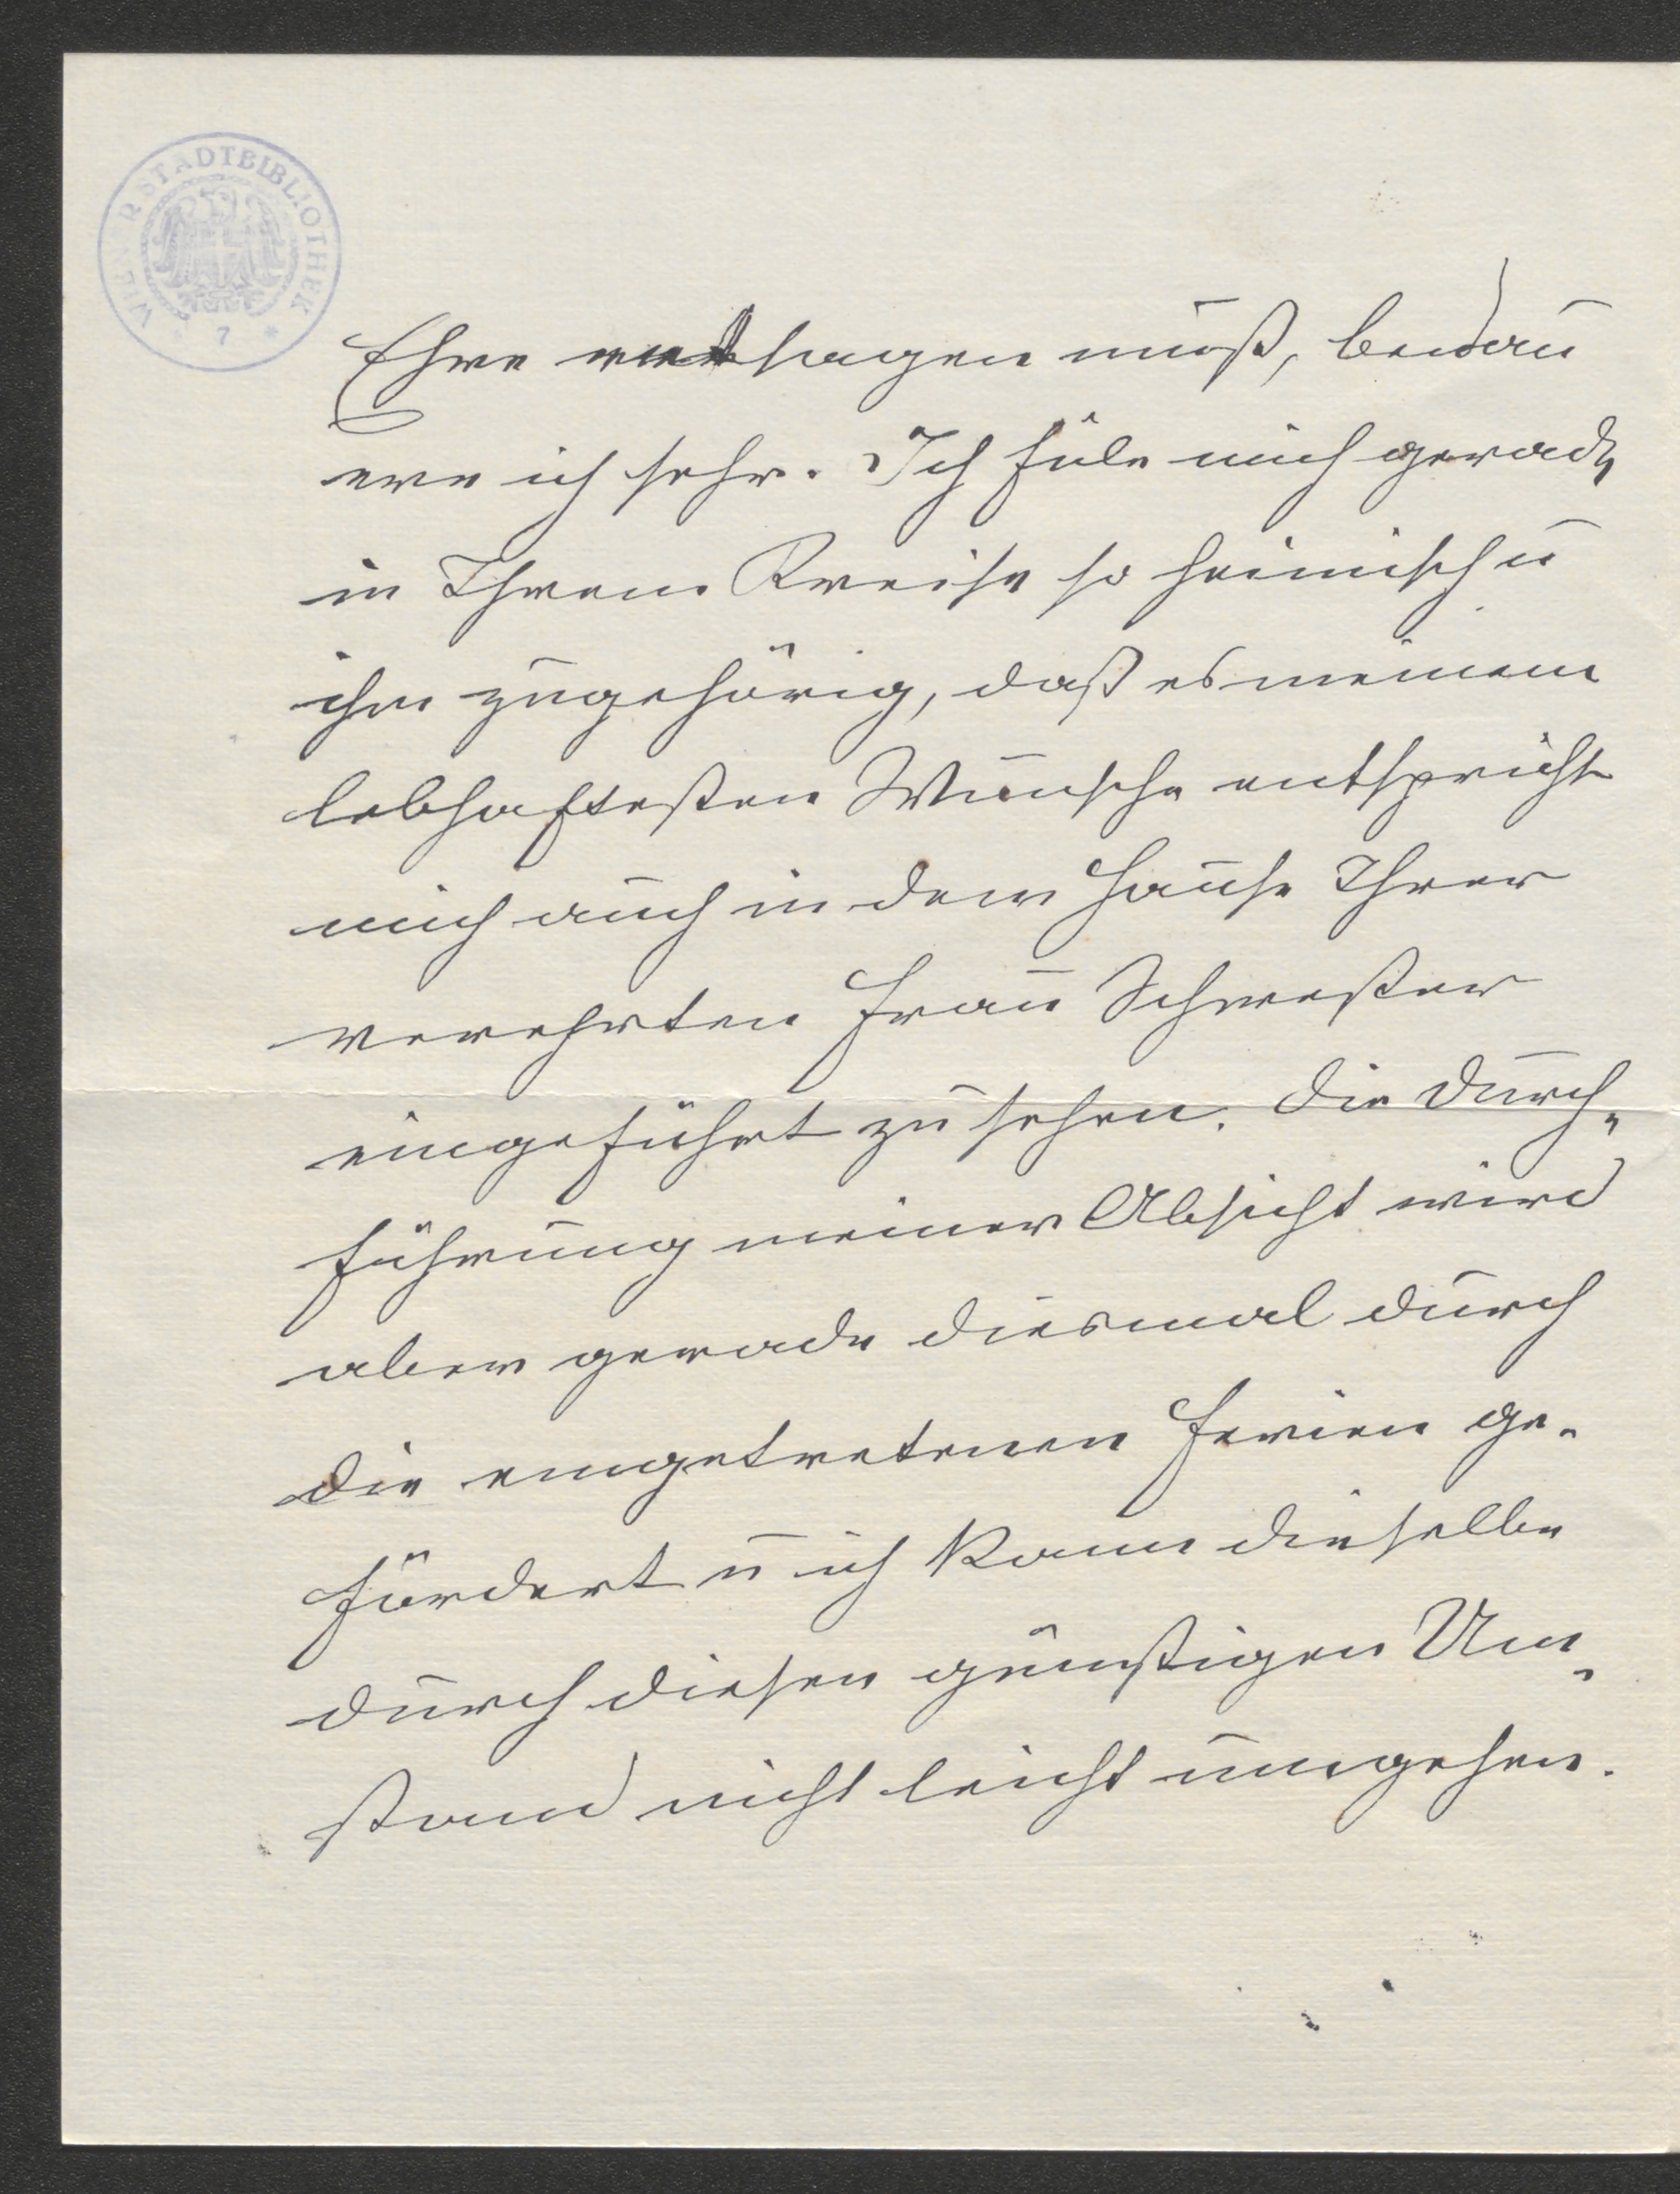 WIENER STADTBIBLIOTHEK
* 7 *
Ehre entsagen muß, bedau
ere ich sehr. Ich füle mich gerade
in Ihrem Kreise so heimisch u
ihm zugehörig, daß es meinem
lebhaftesten Wunsche entspricht
mich auch in dem Hause Ihrer
verehrten Frau Schwester
eingeführt zu sehen. Die Durch-
führung meiner Absicht wird
aber gerade diesmal durch
die eingetretenen Ferien ge-
fördert u ich kann dieselbe
durch diesen günstigen Um-
stand nicht leicht umgehen.